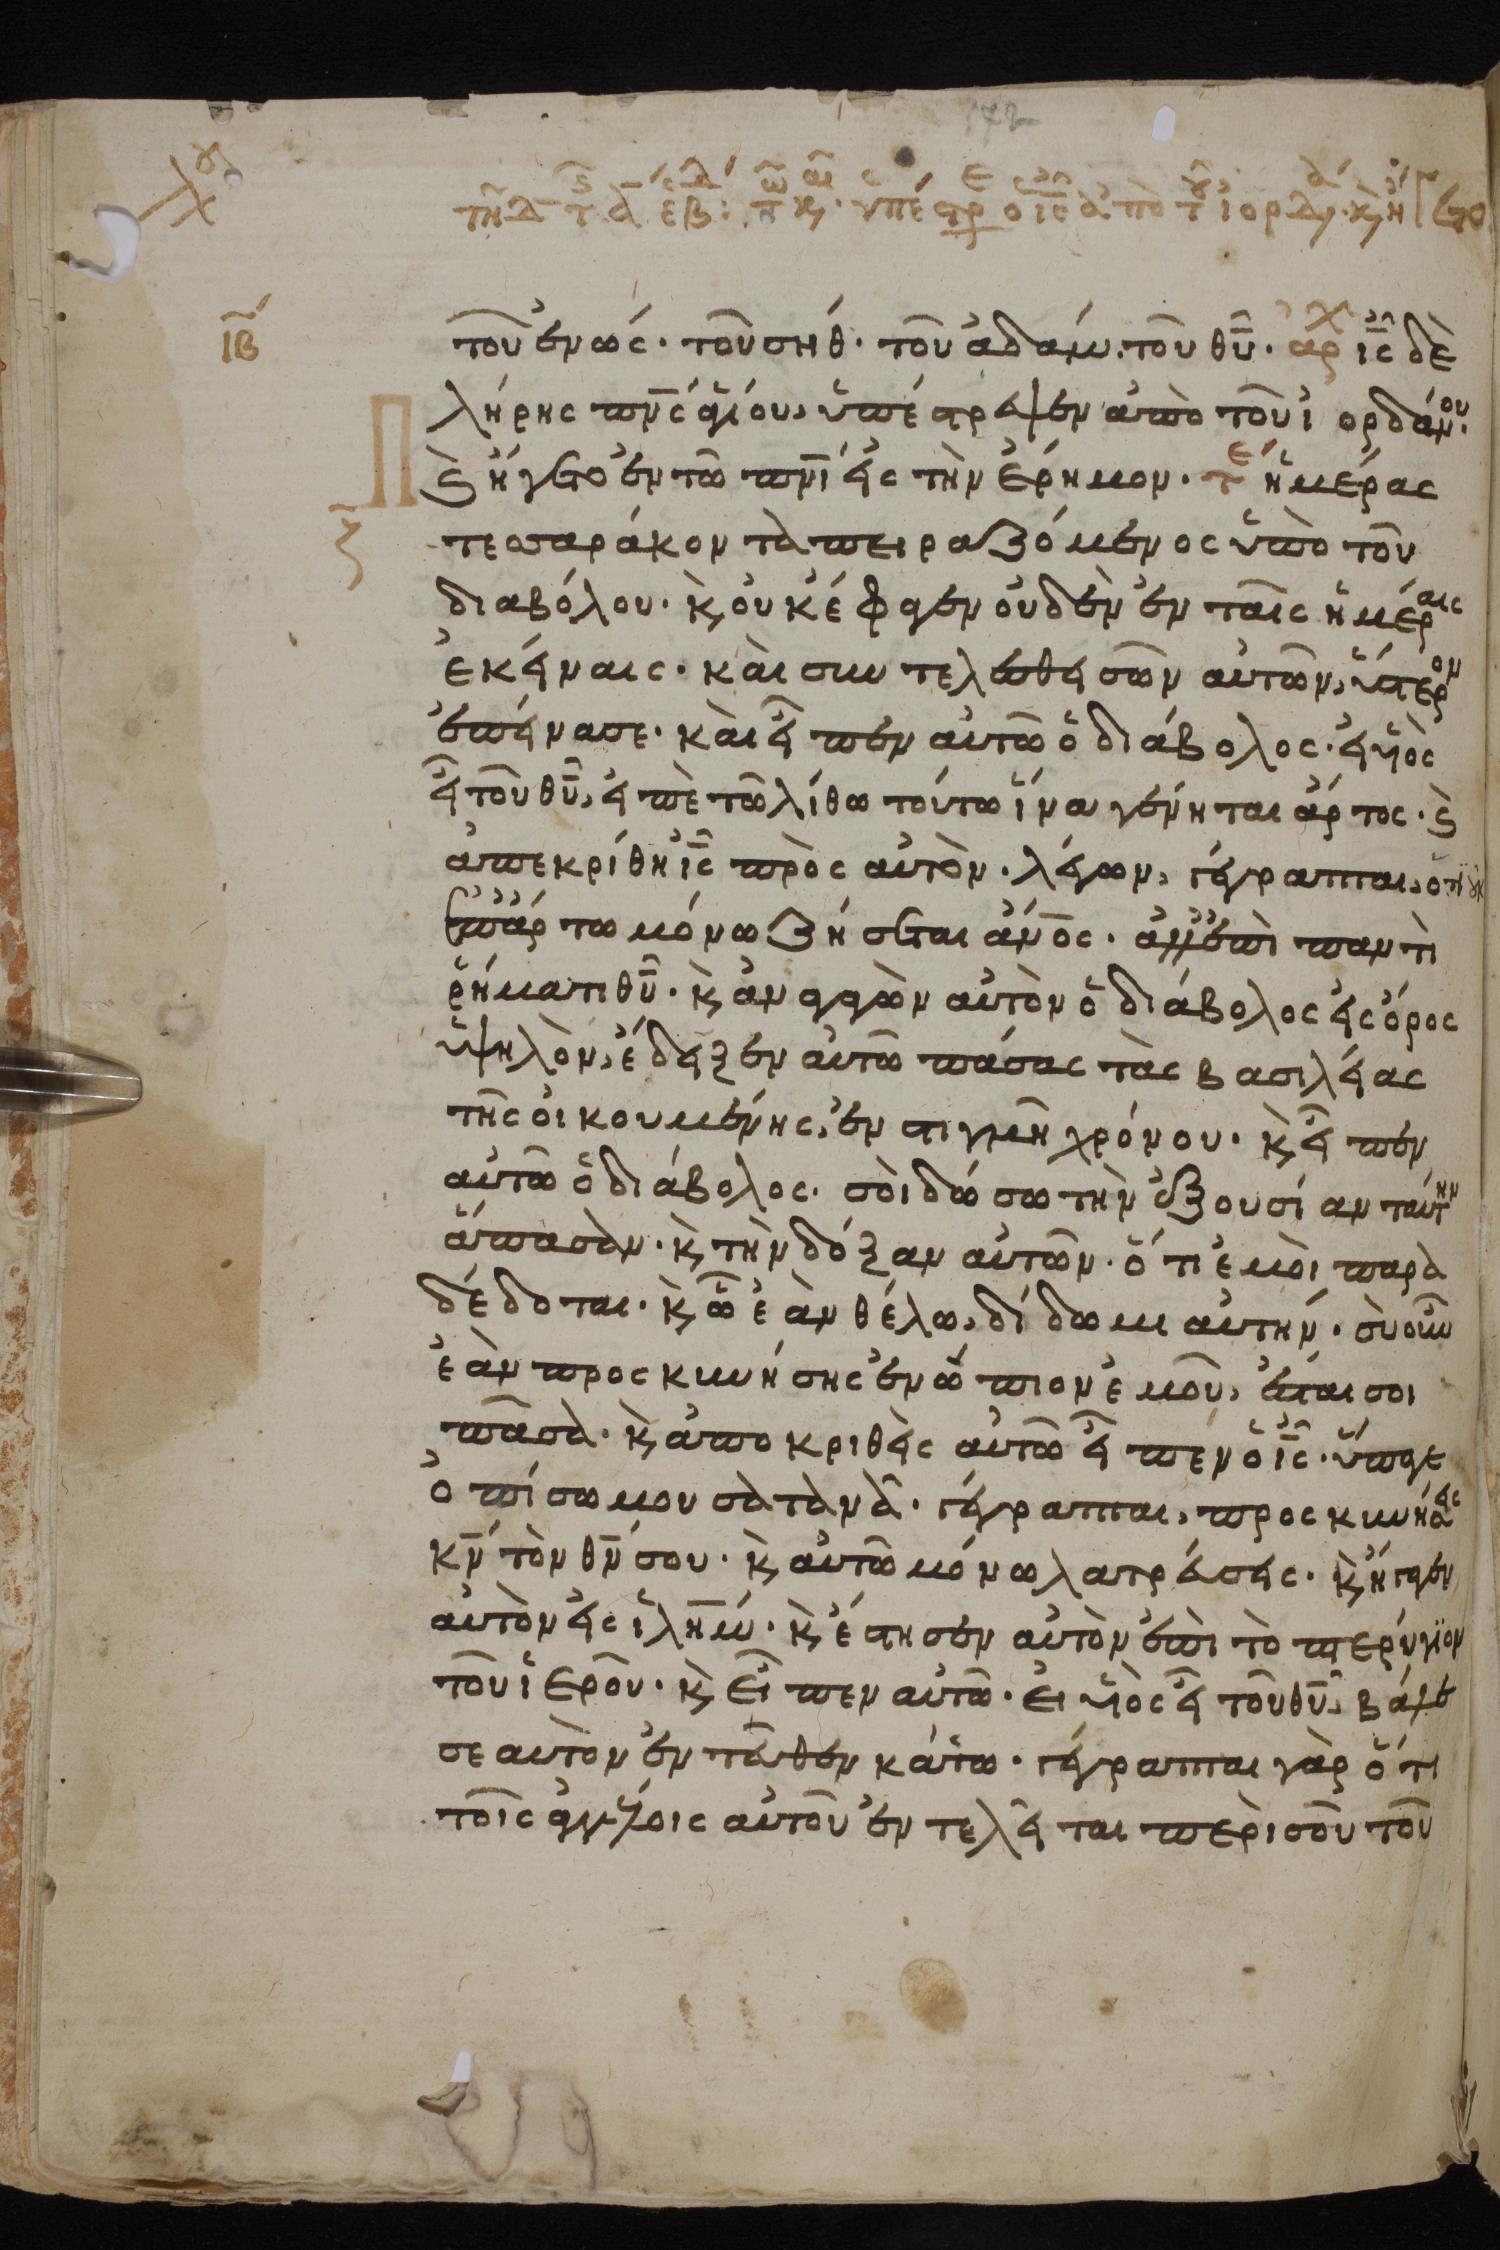 τοῦ ἐνώς· τοῦ σὴθ· τοῦ ἀδάμ· τοῦ θῡ· ἀρχ ις̅ δὲ
Πλήρης πν̅ς ἁγίου, ὑπέστρεψεν ἀπὸ τοῦ ἰορδάνου·
ϗ ἤγετο ἐν τῶ πν̅ι εἰς τὴν ἔρημον· τε ἡμέρας
τεσσαράκοντα πειραζόμενος ὑπὸ τοῦ
διαβόλου· ϗ οὐκ ἔφαγεν οὐδὲν ἐν ταῖς ἡμέραις
ἐκείναις· καὶ συντελεσθεισῶν αὐτῶν, ὕστερον
ἐπείνασε· καὶ εἶπεν αὐτῶ ὁ διάβολος· εἰ υἱὸς
εἶ τοῦ θῡ, εἰπὲ τῶ λίθω τούτω ἵνα γένηται ἄρτος· ϗ
ἀπεκρίθη ις̅ πρὸς αὐτὸν· λέγων, γέγραπται, ὅτι οὐκ
ἐπ' ἄρτω μόνω ζήσεται ἄν̅ος· ἀλλ' ἐπὶ παντὶ
ῥήματι θῡ· ϗ ἀναγαγὼν αὐτὸν ὁ διάβολος εἰς ὄρος
ὑψηλὸν, ἔδειξεν αὐτῶ πάσας τὰς βασιλείας
τῆς οἰκουμένης, ἐν στιγμῆ χρόνου· ϗ εἶπεν
αὐτῶ ὁ διάβολος· σὸι δώσω τὴν ἐξουσίαν ταύτην
ἅπασαν· ϗ τὴν δόξαν αὐτῶν· ὅτι ἐμὸι παρα
δέδοται· ϗ ὧ ἐὰν θέλω, δίδωμι αὐτήν· σὺ οὖν
ἐὰν προσκυνήσης ἐνώπιον ἐμοῦ, ἔσται σοι
πᾶσα· ϗ ἀποκριθεὶς αὐτῶ εἶπεν ὁ ις̅· ὕπαγε
ὀπίσω μου σατανᾶ· γέγραπται, προσκυνήσεις
κν̅ τὸν θν̅ σου· ϗ αὐτῶ μόνω λατρεύσεις· ϗ ἤγαγεν
αὐτὸν εἰς ἱλη̅μ· ϗ ἔστησεν αὐτὸν ἐπὶ τὸ πτερύγιον
τοῦ ἱεροῦ· ϗ εἶπεν αὐτῶ· εἰ υἱὸς εἶ τοῦ θῡ, βάλε
σεαυτὸν ἐντεῦθεν κάτω· γέγραπται γὰρ ὅτι
τοῖς ἀγγέλοις αὐτοῦ ἐντελεῖται περὶ σοῦ τοῦ
ιβ
ζ